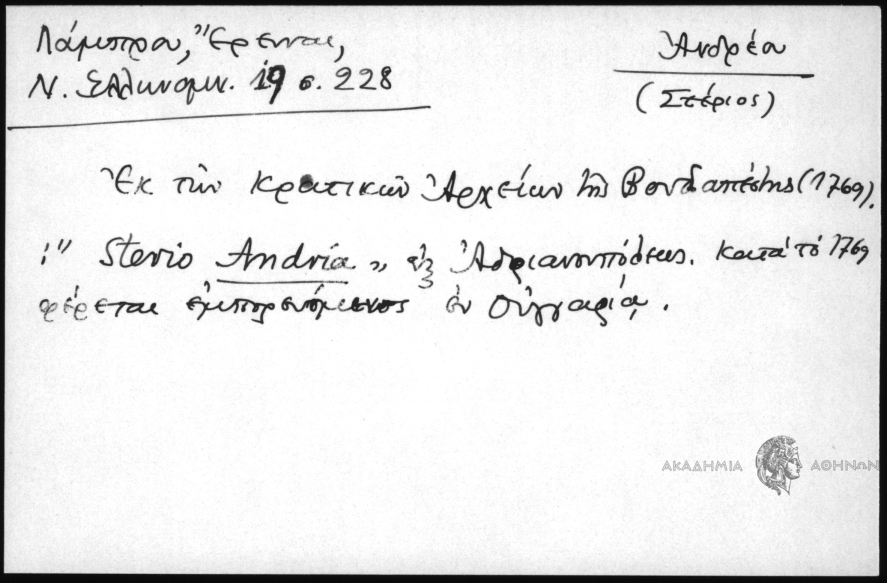 Λάμπρου, Ἔρευναι,
Ν. Ἑλληνομν. 19 σ. 228
Ἀνδρέου
(Στέριος)
Ἐκ τῶν Κρατικῶν Ἀρχείων τῆς Βουδαπέστης (1769).
:" Sterio Andria „ ἐξ Ἀδριανουπόλεως. Κατὰ τὸ 1769
φέρεται ἐμπορευόμενος ἐν Οὑγγαρίᾳ.
ΑΚΑΔΗΜΙΑ ΑΘΗΝΩΝ